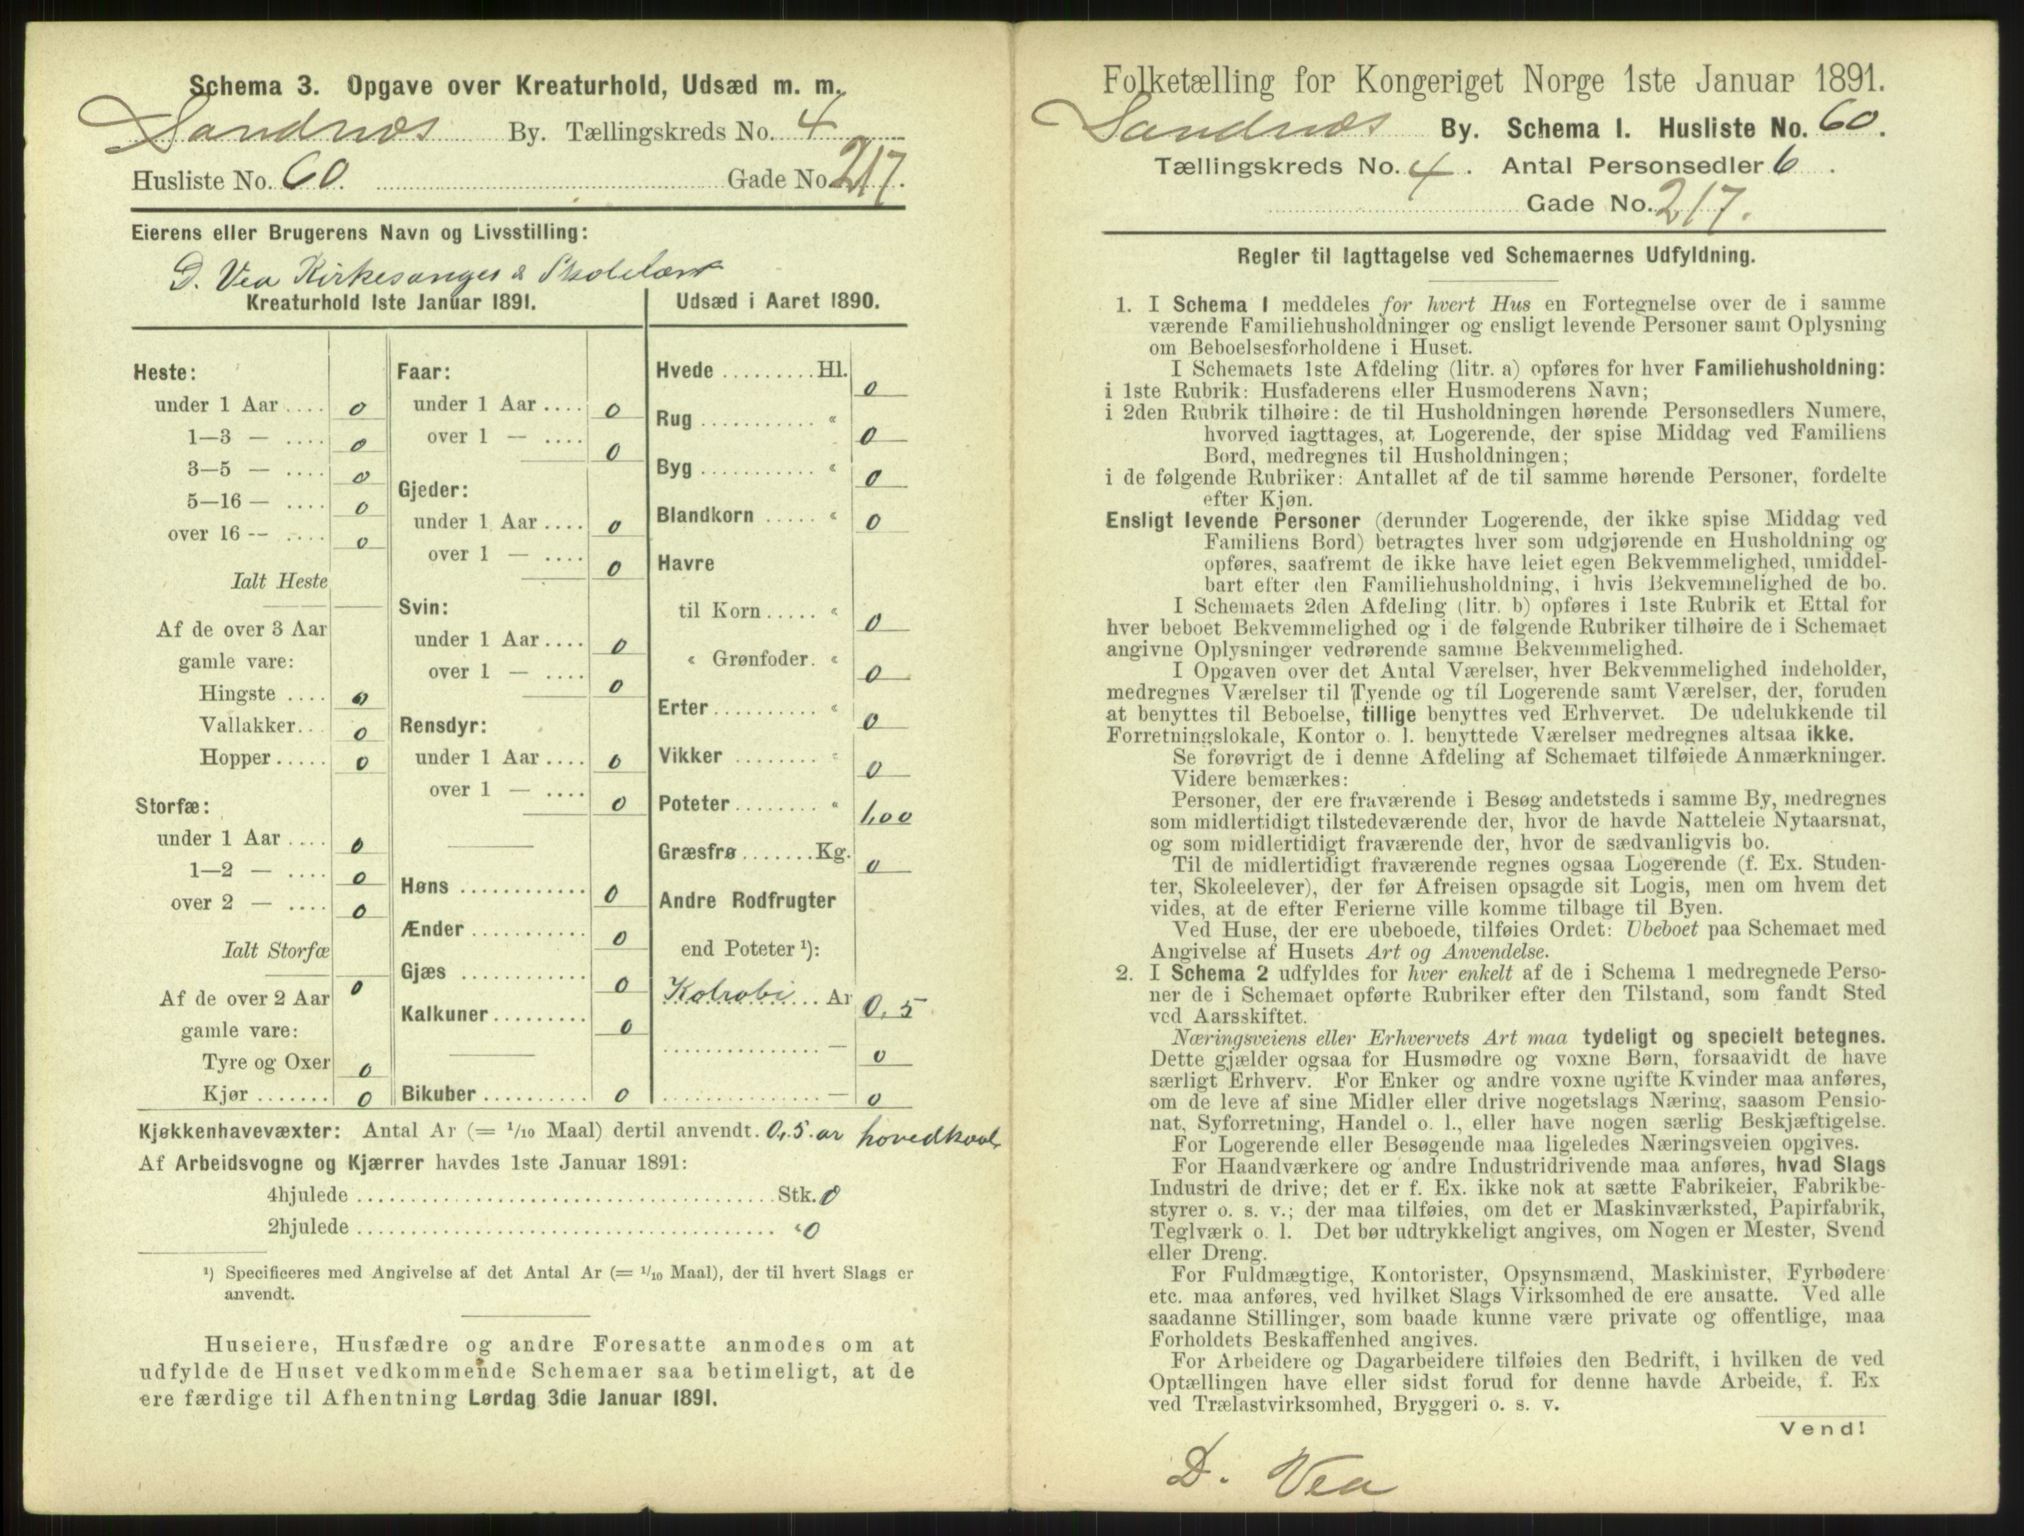 Schema 3. Opgave over Kreaturhold, Udsæd m. m.
Sandnæs By. Tællingskreds No. 4
Husliste No. 60. Gade No. 217.
Eierens eller Brugerens Navn og Livsstilling:
D. Vea Kirkesanger & Skolelærer
Kreaturhold 1ste Januar 1891.
Heste:
under 1 Aar .... 0
1—3 — .... 0
3—5 — .... 0
5—16 — .... 0
over 16 -- .... 0
Ialt Heste
Af de over 3 Aar
gamle vare:
Hingste .... 0
Vallakker... 0
Hopper..... 0
Storfæ:
under 1 Aar .... 0
1—2 — .... 0
over 2 — .... 0
Ialt Storfæ
0
Af de over 2 Aar
gamle vare:
Tyre og Oxer 0
Kjør ....... 0
Faar:
under 1 Aar .... 0
over 1 — .... 0
Gjeder:
under 1 Aar.... 0
over 1 — .... 0
Svin:
under 1 Aar.... 0
over 1 — .... 0
Rensdyr:
under 1 Aar .... 0
over 1 — .... 0
Høns ............ 0
Ænder ........... 0
Gjæs ............ 0
Kalkuner......... 0
Bikuber .......... 0
Udsæd i Aaret 1890.
Hvede ......... Hl. 0
Rug ........... “ 0
Byg ........... “ 0
Blandkorn ..... “ 0
Havre
til Korn ..... “ 0
“ Grønfoder. “ 0
Erter.......... “ 0
Vikker ........ “ 0
Poteter........ “ 1,00
Græsfrø ....... Kg. 0
Andre Rodfrugter
end Poteter ¹):
Kolrabi ... Ar 0,5
............... — 0
............... — 0
Kjøkkenhavevæxter: Antal Ar (= 1/10 Maal) dertil anvendt. 0,5 ar hovedkaal
Af Arbeidsvogne og Kjærrer havdes 1ste Januar 1891:
4hjulede ........................................ Stk. 0
2hjulede ........................................ “ 0
¹) Specificeres med Angivelse af det Antal Ar (= 1/10 Maal), der til hvert Slags er
anvendt.
Huseiere, Husfædre og andre Foresatte anmodes om at
udfylde de Huset vedkommende Schemaer saa betimeligt, at de
ere færdige til Afhentning Lørdag 3die Januar 1891.
Folketælling for Kongeriget Norge 1ste Januar 1891.
Sandnæs By. Schema I. Husliste No. 60.
Tællingskreds No. 4. Antal Personsedler 6.
Gade No. 217.
Regler til Iagttagelse ved Schemaernes Udfyldning.
1. I Schema 1 meddeles for hvert Hus en Fortegnelse over de i samme
værende Familiehusholdninger og ensligt levende Personer samt Oplysning
om Beboelsesforholdene i Huset.
I Schemaets 1ste Afdeling (litr. a) opføres for hver Familiehusholdning:
i 1ste Rubrik: Husfaderens eller Husmoderens Navn;
i 2den Rubrik tilhøire: de til Husholdningen hørende Personsedlers Numere,
hvorved iagttages, at Logerende, der spise Middag ved Familiens
Bord, medregnes til Husholdningen;
i de følgende Rubriker: Antallet af de til samme hørende Personer, fordelte
efter Kjøn.
Ensligt levende Personer (derunder Logerende, der ikke spise Middag ved
Familiens Bord) betragtes hver som udgjørende en Husholdning og
opføres, saafremt de ikke have leiet egen Bekvemmelighed, umiddel-
bart efter den Familiehusholdning, i hvis Bekvemmelighed de bo.
I Schemaets 2den Afdeling (litr. b) opføres i 1ste Rubrik et Ettal for
hver beboet Bekvemmelighed og i de følgende Rubriker tilhøire de i Schemaet
angivne Oplysninger vedrørende samme Bekvemmelighed.
I Opgaven over det Antal Værelser, hver Bekvemmelighed indeholder,
medregnes Værelser til Tyende og til Logerende samt Værelser, der, foruden
at benyttes til Beboelse, tillige benyttes ved Erhvervet. De udelukkende til
Forretningslokale, Kontor o. l. benyttede Værelser medregnes altsaa ikke.
Se forøvrigt de i denne Afdeling af Schemaet tilføiede Anmærkninger.
Videre bemærkes:
Personer, der ere fraværende i Besøg andetsteds i samme By, medregnes
som midlertidigt tilstedeværende der, hvor de havde Natteleie Nytaarsnat,
og som midlertidigt fraværende der, hvor de sædvanligvis bo.
Til de midlertidigt fraværende regnes ogsaa Logerende (f. Ex. Studen-
ter, Skoleelever), der før Afreisen opsagde sit Logis, men om hvem det
vides, at de efter Ferierne ville komme tilbage til Byen.
Ved Huse, der ere ubeboede, tilføies Ordet: Ubeboet paa Schemaet med
Angivelse af Husets Art og Anvendelse.
2. I Schema 2 udfyldes for hver enkelt af de i Schema 1 medregnede Perso-
ner de i Schemaet opførte Rubriker efter den Tilstand, som fandt Sted
ved Aarsskiftet.
Næringsveiens eller Erhvervets Art maa tydeligt og specielt betegnes.
Dette gjælder ogsaa for Husmødre og voxne Børn, forsaavidt de have
særligt Erhverv. For Enker og andre voxne ugifte Kvinder maa anføres,
om de leve af sine Midler eller drive nogetslags Næring, saasom Pensio-
nat, Syforretning, Handel o. l., eller have nogen særlig Beskjæftigelse.
For Logerende eller Besøgende maa ligeledes Næringsveien opgives.
For Haandværkere og andre Industridrivende maa anføres, hvad Slags
Industri de drive; det er f. Ex. ikke nok at sætte Fabrikeier, Fabrikbe-
styrer o. s. v.; der maa tilføies, om det er Maskinværksted, Papirfabrik,
Teglværk o. l. Det bør udtrykkeligt angives, om Nogen er Mester, Svend
eller Dreng.
For Fuldmægtige, Kontorister, Opsynsmænd, Maskinister, Fyrbødere
etc. maa anføres, ved hvilket Slags Virksomhed de ere ansatte. Ved alle
saadanne Stillinger, som baade kunne være private og offentlige, maa
Forholdets Beskaffenhed angives.
For Arbeidere og Dagarbeidere tilføies den Bedrift, i hvilken de ved
Optællingen have eller sidst forud for denne havde Arbeide, f. Ex
ved Trælastvirksomhed, Bryggeri o. s. v.
Vend!
D. Vea